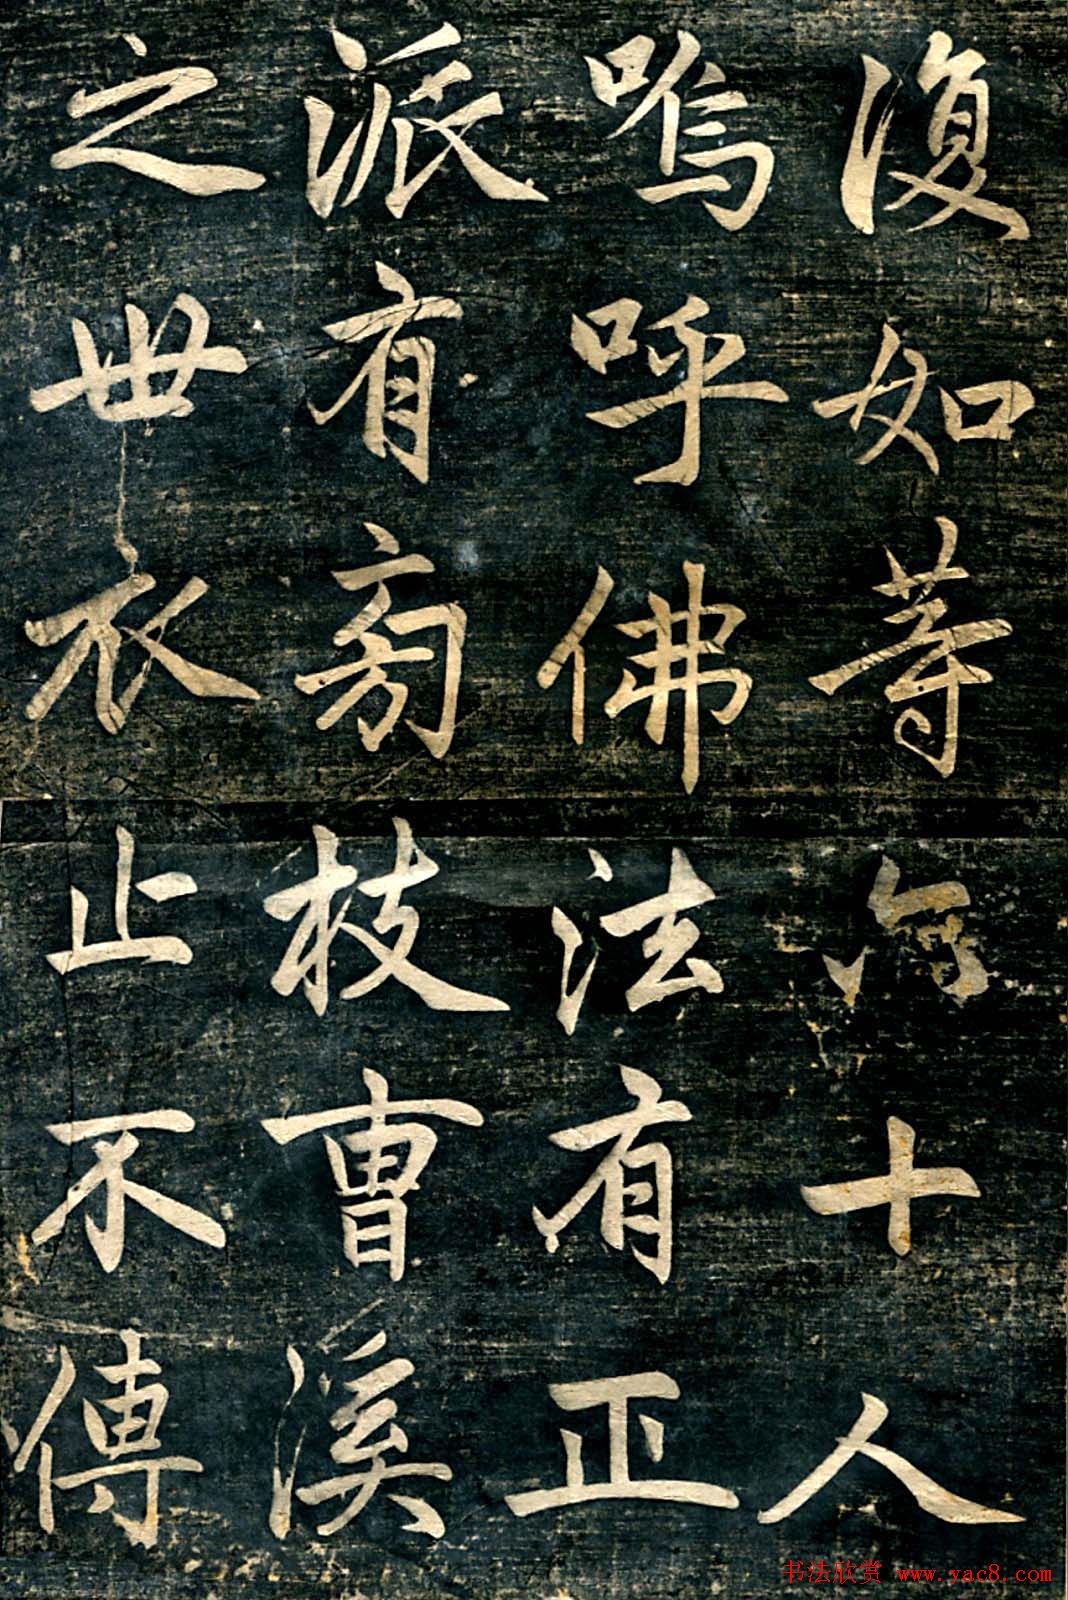 復如等六十人
嗚呼佛法有正
派有旁枝曹溪
之世衣止不傳
书法欣赏 www.yac8.com